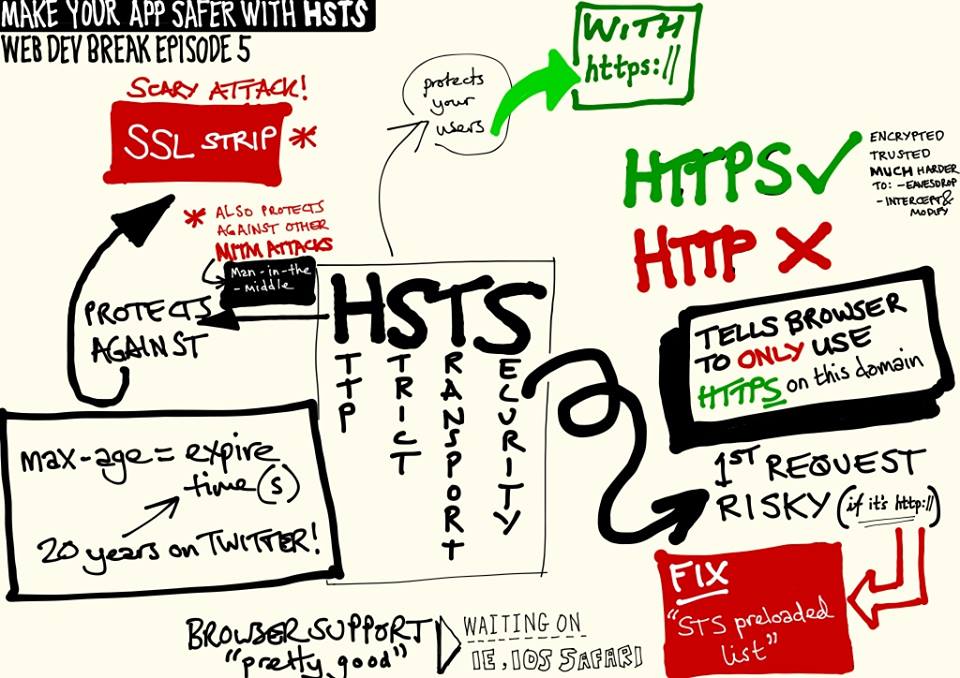 MAKE YOUR APP SAFER WITH HSTS
WEB DEV BREAK EPISODE 5
SCARY ATTACK!
SSL STRIP *
* ALSO PROTECTS
AGAINST OTHER
MITM ATTACKS
Man-in-the
-middle
PROTECTS
AGAINST
protects
your
users
WITH
https://
HTTPS ✓
ENCRYPTED
TRUSTED
MUCH HARDER
TO: -EAVESDROP
- INTERCEPT &
MODIFY
HTTP X
HSTS
TTP
TRICT
RANSPORT
ECURITY
TELLS BROWSER
TO ONLY USE
HTTPS on this domain
1ST REQUEST
RISKY (if it's http://)
FIX
"STS preloaded
list"
max-age = expire
time(s)
20 years on TWITTER!
BROWSER SUPPORT
"pretty good"
WAITING ON
IE, IOS SAFARI